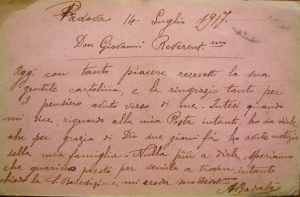 Padova 14 Luglio 1917.
Don Giovanni Reverent.mo
Oggi con tanto piacere recevetti la sua
gentile cartolina, e la ringrazio tanto per
il pensiero avuto verso di me. Intesi quando
mi dice riguardo alla mia Posta intanto ho da dirle
che per grazia di Dio due giorni fà ho avuto notizie
della mia famiglia. Nulla più a dirle, Speriamo
che guarirò presto per venirla a trovare, intanto
chiedo la S. Benedizione e mi creda suo